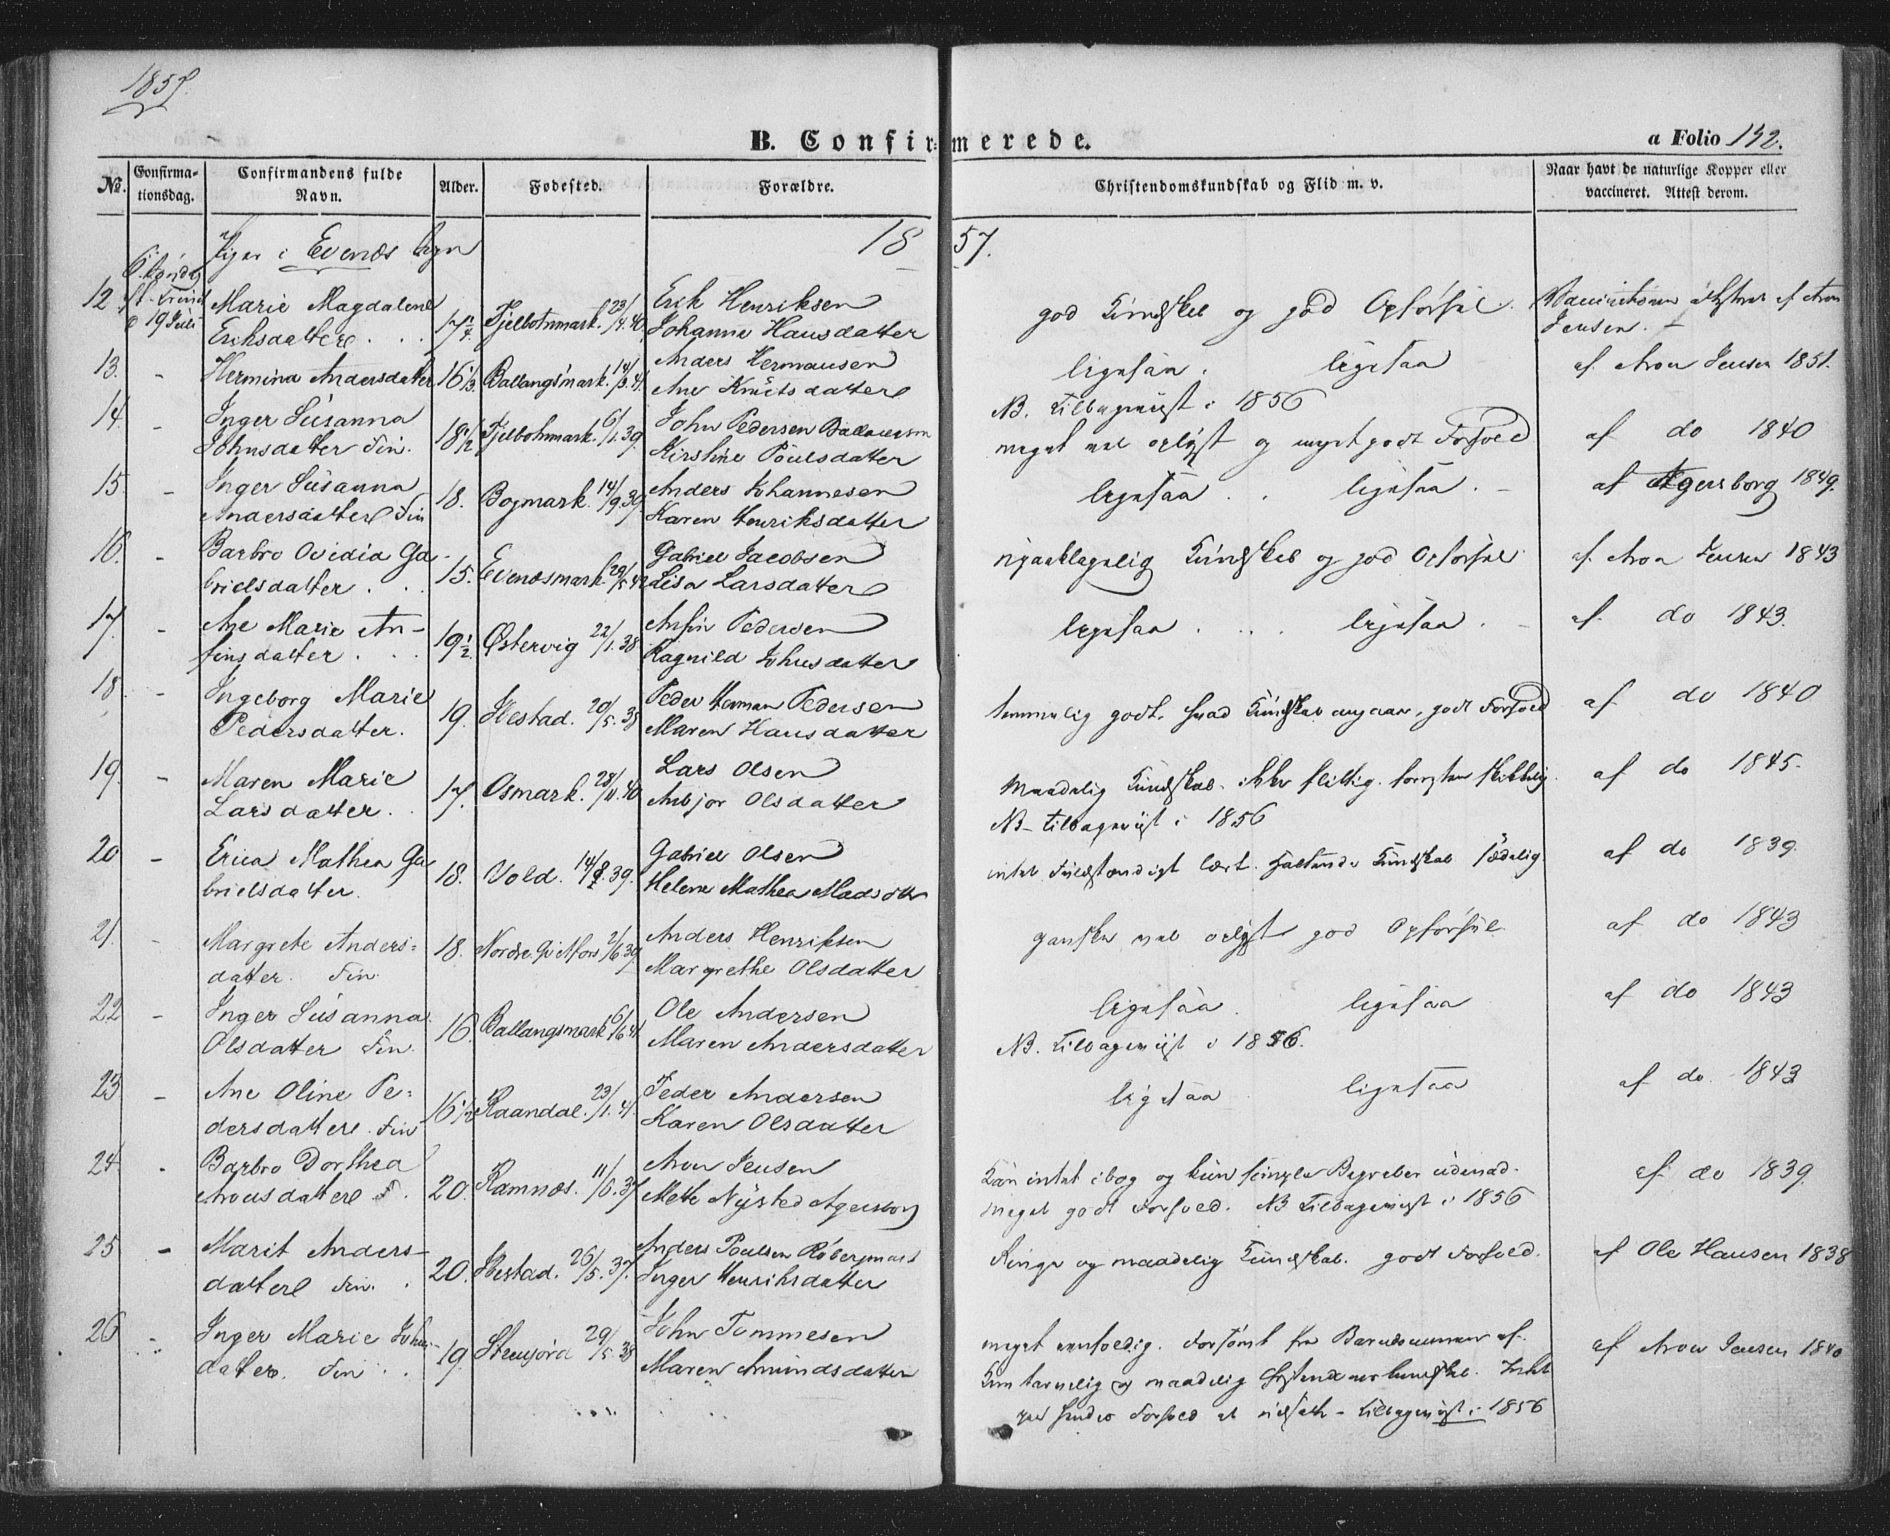 1857.
B. Confirmerede.
a Folio 142.
No. Confirmationsdag. Confirmandens fulde Navn. Alder. Fødested. Forældre. Christendomskundskab og Flid m. v. Naar havt de naturlige Kopper eller vaccineret. Attest derom.
Piger i Evenæs Sogn 1857.
12 19 Juli Marie Magdalene Eriksdatter 17 1/4 Fjelbotnmark. 23/4.40. Erik Henriksen
Johanna Hansdatter god Kundskab og god Opførsel. af Aron Jensen.
13. - Hermina Andersdatter 16 1/3 Ballangsmark. 14/3.41 Anders Hermansen
Ane Knutsdatter ligesaa. ligesaa af Aron Jensen 1851.
NB. Tilbageviist i 1856
14. - Inger Susanna
Johnsdatter Fin. 18 1/2 Fjelbotnmark. 6/1.39. John Pedersen
Kirstine Poulsdatter meget vel oplyst og meget godt Forhold af do 1840
15. - Inger Susanna
Andersdatter Fin 18. Bogmark. 14/9.39 Anders Johannesen
Karen Henriksdatter ligesaa.. ligesaa. - af Agersborg 1849.
16. - Barbro Ovidia Ga-
brielsdatter.. 15. Evenæsmark 29/5.42 Gabriel Jacobsen
Lisa Larsdatter Kundskab og god Opførsel af Aron Jensen 1843
17. - Ane Marie An-
finsdatter... 19 1/2 Østervig 22/1.38 Anfin Pedersen
Ragnild Johnsdatter ligesaa.... ligesaa. - af do 1843.
18. - Ingeborg Marie
Pedersdatter. 19. Hestad. 20/5.38 Peder Herman Pedersen
Maren Hansdatter temmelig godt, hvad Kundskab angaar, godt Forhold af do 1840
19. - Maren Marie
Larsdatter. 17. Osmark. 28/11.40 Lars Olsen
Anbjør Olsdatter Maadelig Kundskab. ikke flittig. forresten skikkelig. af do 1845.
NB - tilbageviist i 1856
20 - Erica Mathea Ga
brielsdatter. 18. Vold. 39. Gabriel Olsen
Helene Mathea Madsdtr intet Fuldstændigt lært. Kundskab Sædelig af do 1839.
21. - Margrete Anders-
datter. Fin 18. Nordre 2/6 39 Anders Henriksen
Margrethe Olsdatter ganske vel oplyst god Opførsel af do 1843
22 - Inger Susanna
Olsdatter Fin 16. Ballangsmark 6/6.41 Ole Andersen
Maren Andersdatter ligesaa. ligesaa af do 1843
NB. Tilbageviist i 1856.
23 - Ane Oline Pe-
dersdatter. Fin 16 1/2 Raandal. 23/1.41. Peder Andersen
Karen Olsdatter ligesaa ligesaa af do. 1843
24 - Barbro Dorthea
Aronsdatter F. 20. Ramnæs. 11/6.37 Aron Jensen
Mette Nysted Agersborg Kan intet i bog og kun simple Begreber udenad.
meget godt Forhold. NB Tilbageviist i 1856 af do 1839
25 - Marit Anders-
datter Fin. 20. Hestad. 26/5.37. Anders Poulsen
Inger Henriksdatter Ringe og maadelig Kundskab. godt Forhold. af Ole Hansen 1838
26 - Inger Marie John-
datter. Fin.. 19. 29/5.38 John Tommesen
Maren Amundsdatter meget eenfoldig. Forsømt fra Barndommen af.
Kun tarvelig og maadelig Intet
paa hendes Forhold at udsætte - tilbageviist i 1856 af Aron Jensen 1840